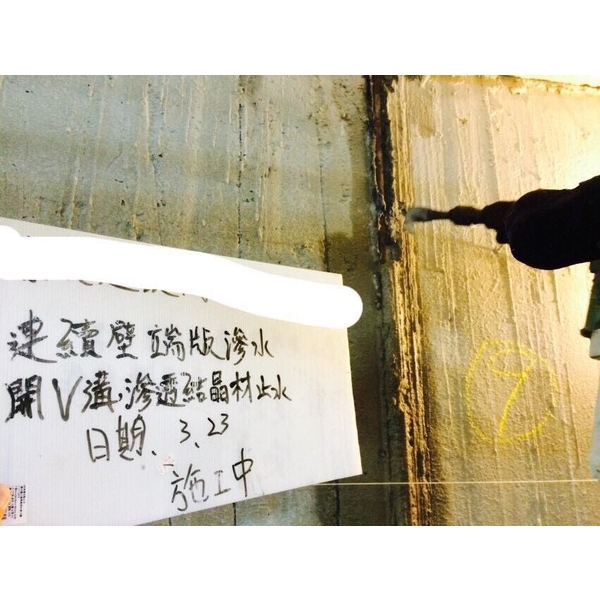 連續壁端版滲水
開V溝,滲透結晶材止水
日期、3、23
施工中
9